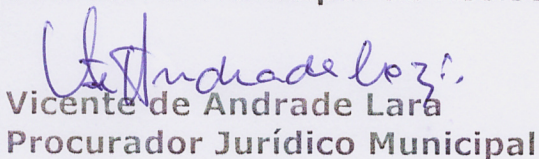 Vicente de Andrade Lara
Procurador Jurídico Municipal